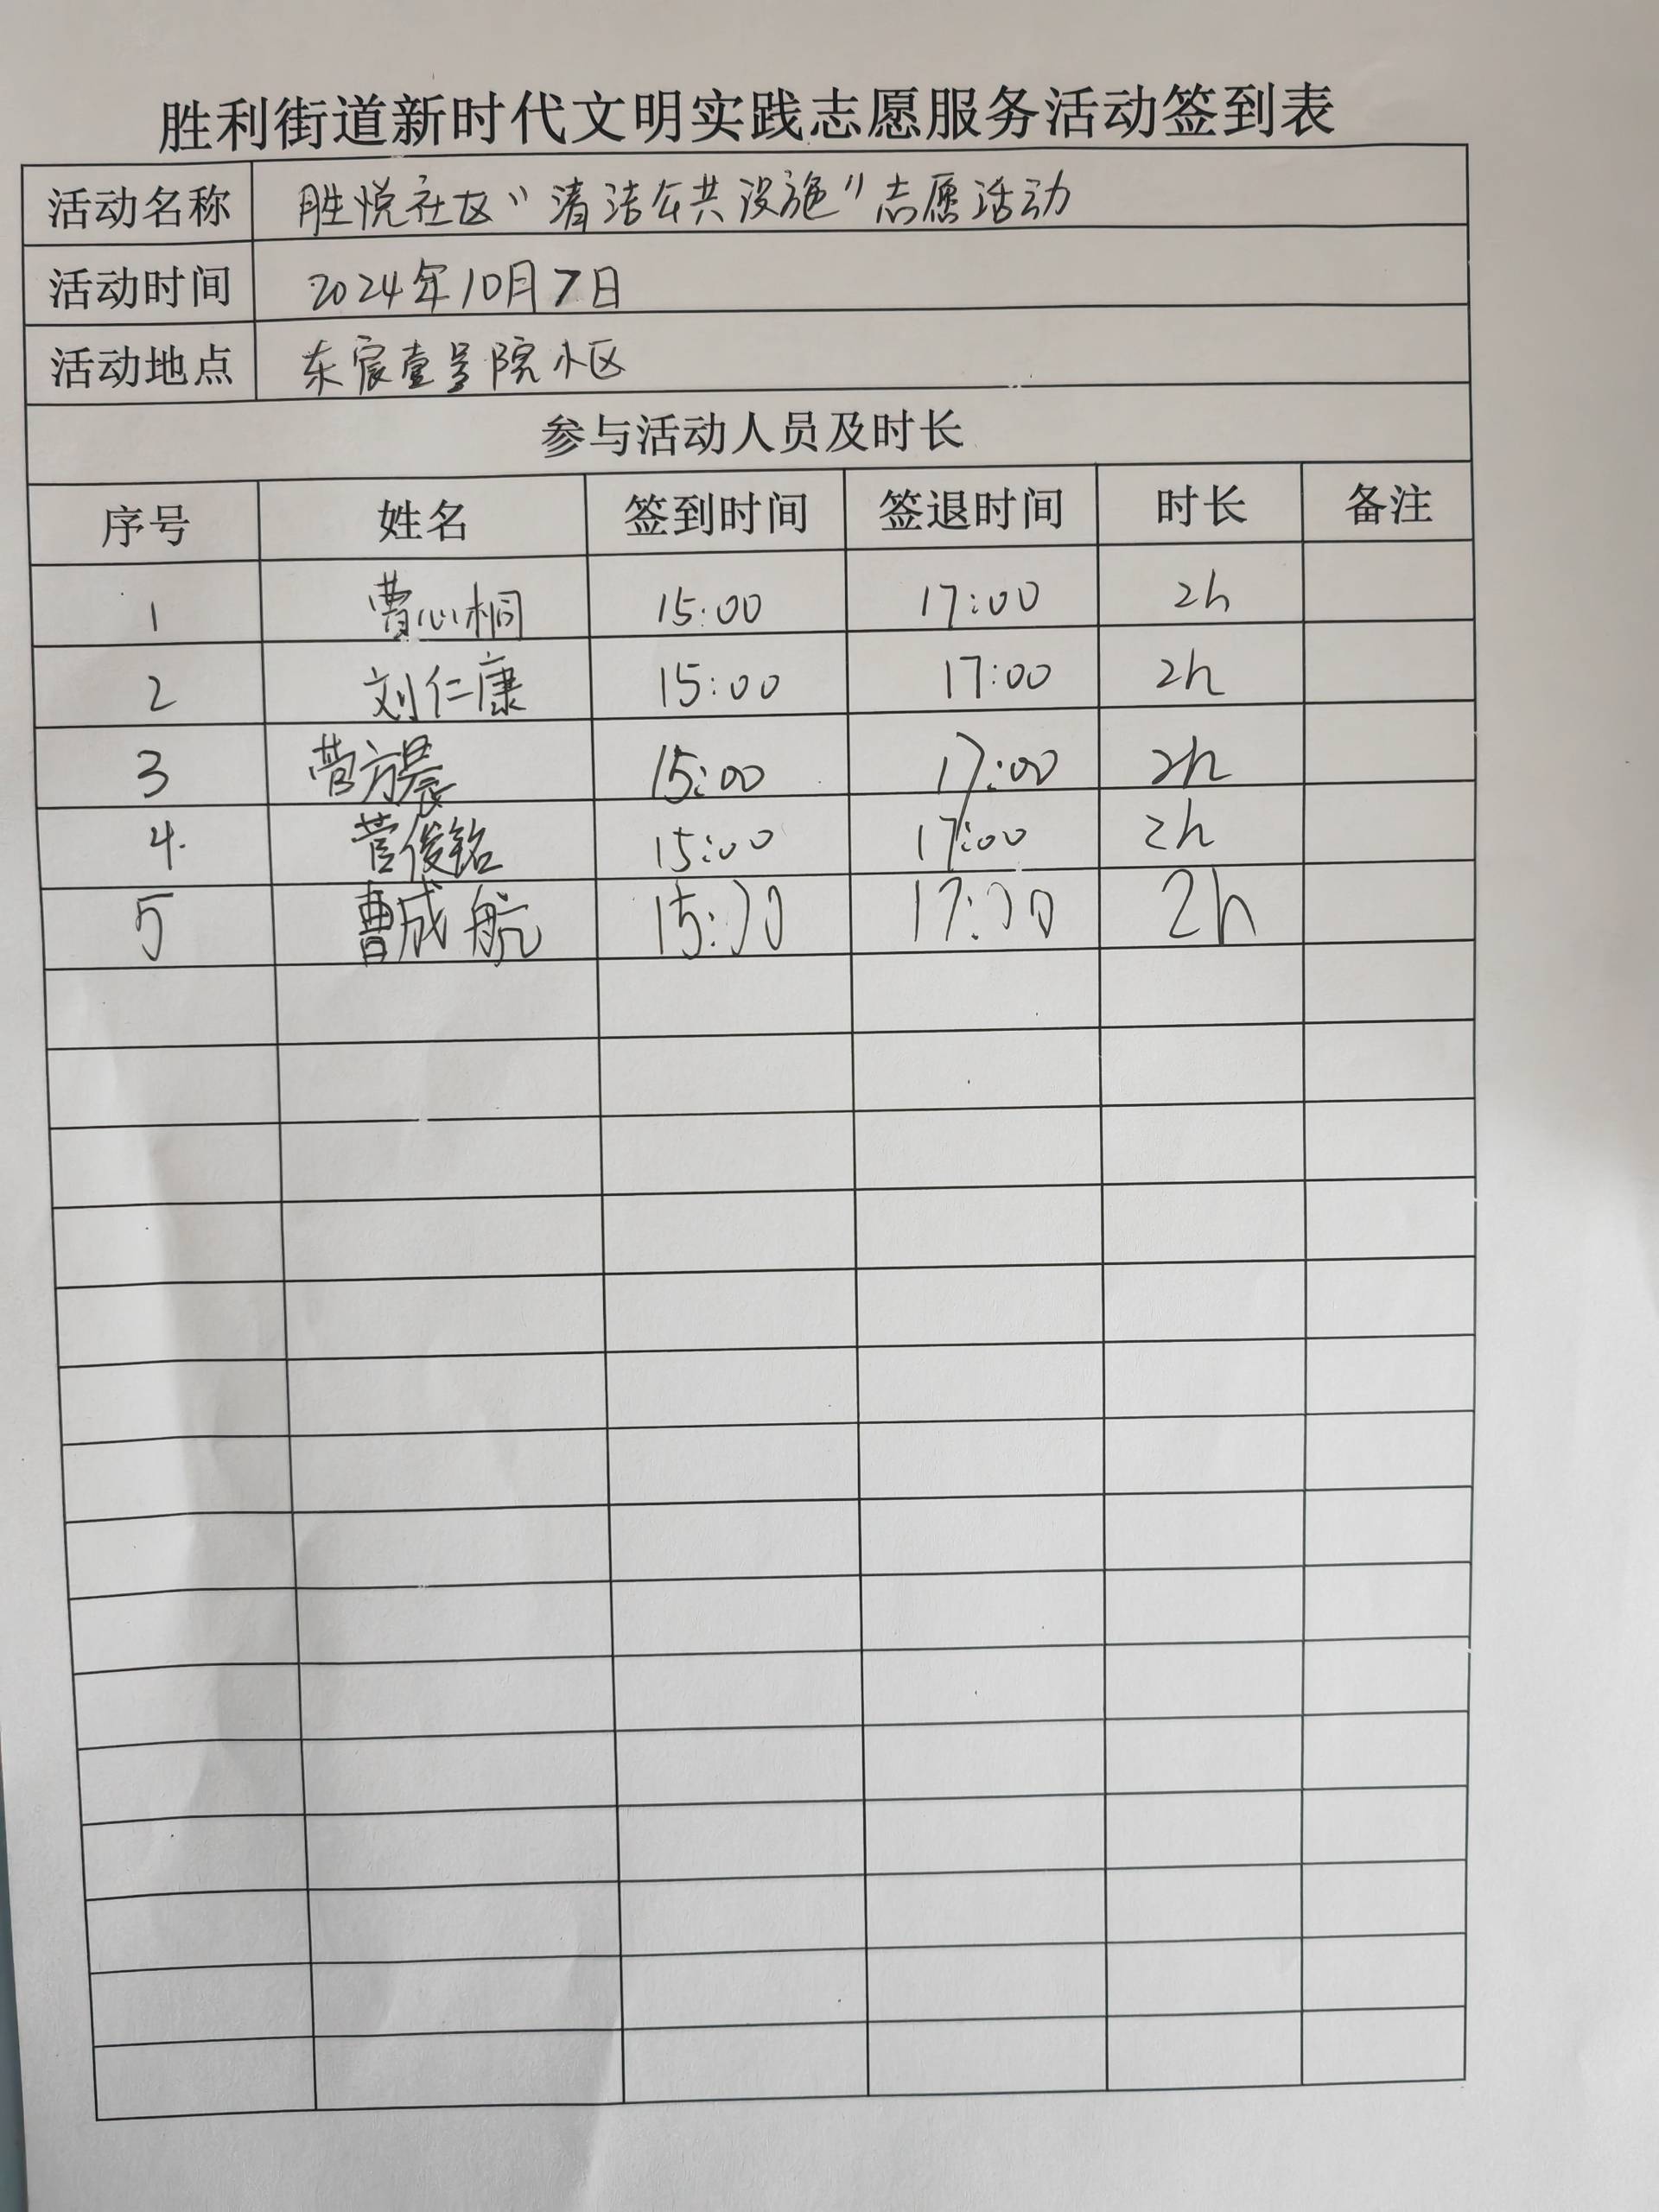 胜利街道新时代文明实践志愿服务活动签到表
活动名称 胜悦社区“清洁公共设施”志愿活动
活动时间 2024年10月7日
活动地点 东宸壹号院小区
参与活动人员及时长
序号 姓名 签到时间 签退时间 时长 备注
1 曹心桐 15:00 17:00 2h
2 刘仁康 15:00 17:00 2h
3 15:00 17:00 2h
4. 菅俊铭 15:00 17:00 2h
5 曹成航 15:00 17:00 2h